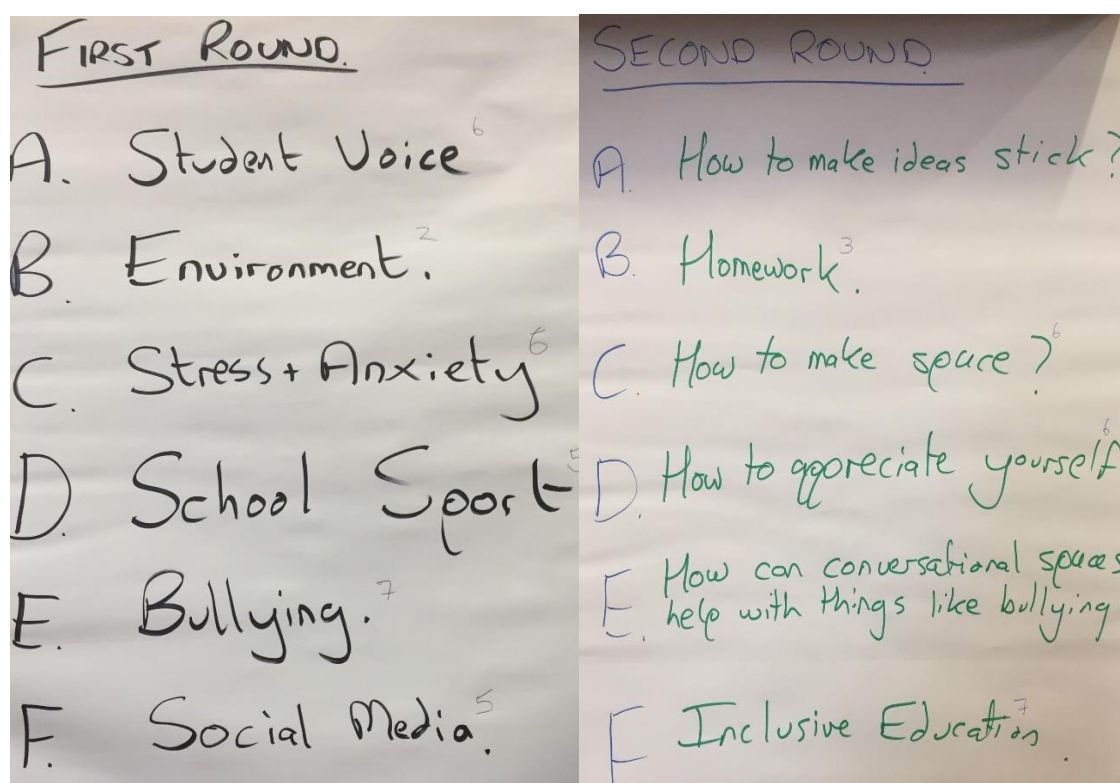 FIRST ROUND.
A. Student Voice 6
B. Environment. 2
C. Stress + Anxiety 6
D. School Sport 5
E. Bullying. 7
F. Social Media. 5
SECOND ROUND
A. How to make ideas stick?
B. Homework. 3
C. How to make space? 6
D. How to appreciate yourself 6
E. How can conversational spaces
help with things like bullying
F Inclusive Education. 7